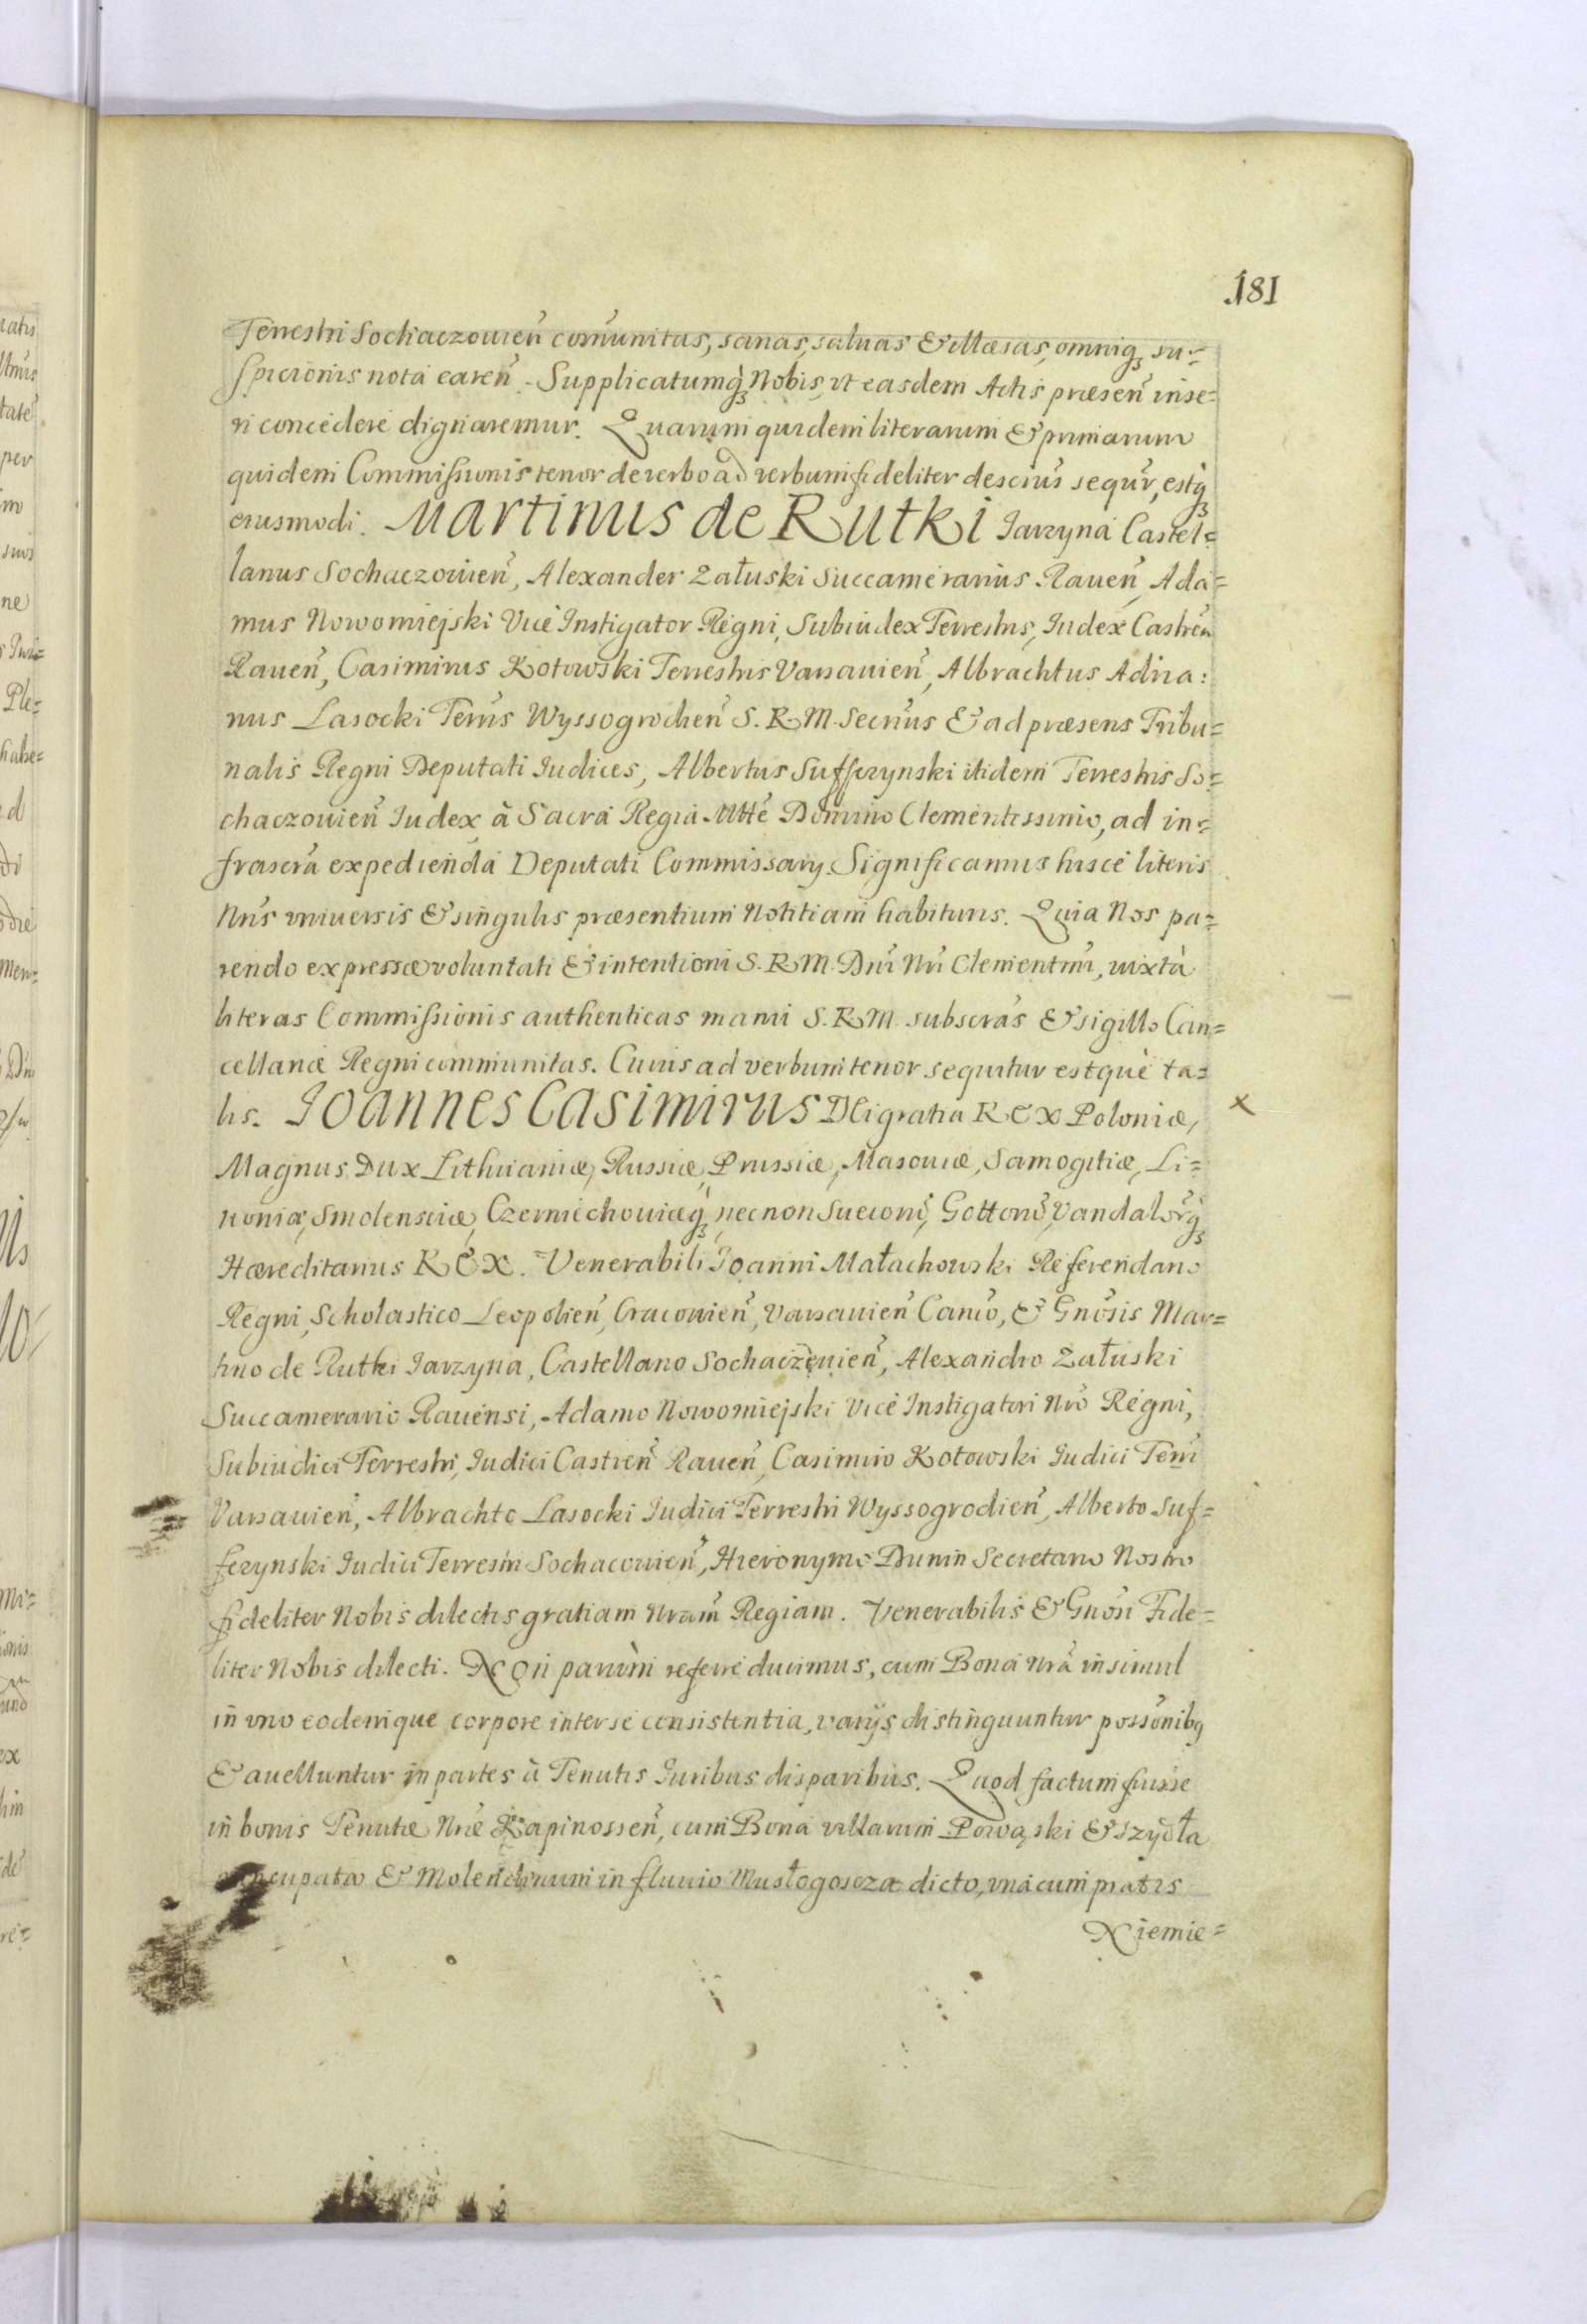 181
Terrestri Sochaczouien̄ com̄unitas, sanas, saluas & illæsas, omniq₃ su=
spicionis nota caren̄. Supplicatumq₃ Nobis, vt easdem Actis præsen̄ inse=
ri concedere dignaremur. Quarum quidem literarum & primarum
quidem Commissionis tenor de verbo ad verbum fideliter descr̄us sequr̄, estq₃
eiusmodi. Martinus de Rutki Jarzyna Castel=
lanus Sochaczouien̄, Alexander Załuski Succamerarius Rauen̄, Ada=
mus Nowomiejski Vice Instigator Regni, Subiudex Terrestris, Iudex Castren̄
Rauen̄, Casimirus Kotowski Terrestris Varsauien̄, Albrachtus Adria:
nus Lasocki Terr̄is Wyssogrodien̄ S. R. M. Secr̄ius & ad præsens Tribu=
nalis Regni Deputati Iudices, Albertus Suffczynski itidem Terrestris So=
chaczouien̄ Iudex à Sacra Regia Mtte Domino Clementissimo, ad in=
frascr̄a expedienda Deputati Commissarÿ. Significamus hisce literis
Nr̄is vniuersis & singulis præsentium Notitiam habituris. Quia Nos pa=
rendo expressæ voluntati & intentioni S. R. M. Dn̄i Nr̄i Clementmi, iuxta
literas Commissionis authenticas manu S. R. M. subscr̄as & sigillo Can=
cellariæ Regni communitas. Cuius ad verbum tenor sequitur estque ta=
lis. Ioannes Casimirus DEi gratia REX Poloniæ, x
Magnus Dux Lithuaniæ, Russiæ, Prussiæ, Masouiæ, Samogitiæ, Li=
uoniæ, Smolensciæ, Czerniechouiæq₃, necnon Suecorū, Gottorū, Vandalorūq₃
Hæreditarius REX. Venerabili Joanni Małachowski Referendario
Regni, Scholastico Leopolien̄, Cracouien̄, Varsauien̄ Can̄co, & Gn̄osis Mar=
tino de Rutki Jarzyna, Castellano Sochaczeuien̄, Alexandro Załuski
Succamerario Rauensi, Adamo Nowomiejski Vice Instigatori Nr̄o Regni,
Subiudici Terrestri, Iudici Castren̄ Rauen̄, Casimiro Kotowski Iudici Terr̄i
Varsauien̄, Albrachto Lasocki Iudici Terrestri Wyssogrodien̄, Alberto Suf=
fczynski Iudici Terrestri Sochacouien̄, Hieronymo Dunin Secretario Nostro
fideliter Nobis dilectis gratiam Nr̄am Regiam. Venerabilis & Gn̄osi Fide=
liter Nobis dilecti. Non parum referre ducimus, cum Bona Nr̄a insimul
in vno eodemque corpore inter se consistentia, varÿs distinguuntur poss̄onibq
& auelluntur in partes à Tenutis Iuribus disparibus. Quod factum fuisse
in bonis Tenutæ Nr̄æ Kapinossen̄, cum Bona villarum Powąski & Szydła
nuncupata & Molendinum in fluuio Mustogoscza dicto, vnà cum pratis
Niemie=